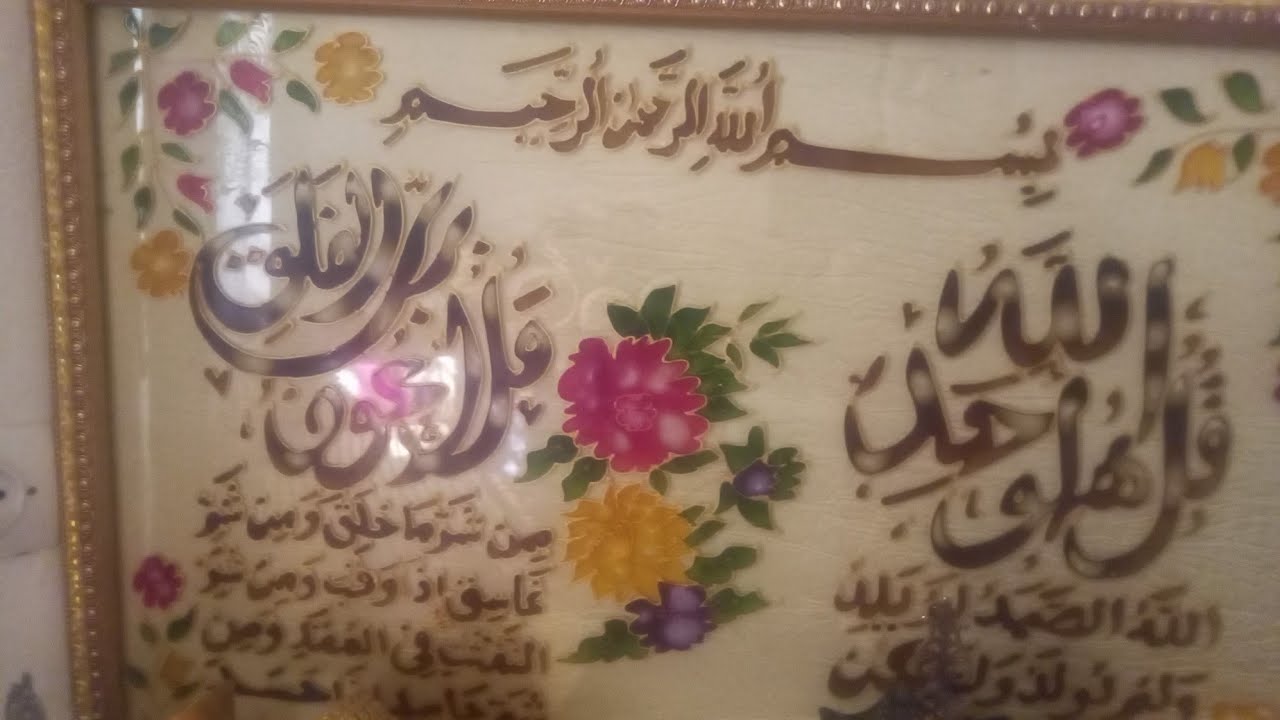 بِسْمِ اللَّهِ الرَّحْمٰنِ الرَّحِيمِ
قُلْ هُوَ اللَّهُ أَحَدٌ
اللَّهُ الصَّمَدُ لَمْ يَلِدْ
وَلَمْ يُولَدْ وَلَمْ يَكُنْ
قُلْ أَعُوذُ بِرَبِّ الْفَلَقِ
مِنْ شَرِّ مَا خَلَقَ وَمِنْ شَرِّ
غَاسِقٍ إِذَا وَقَبَ وَمِنْ شَرِّ
النَّفّٰثٰتِ فِي الْعُقَدِ وَمِنْ
شَرِّ حَاسِدٍ إِذَا حَسَدَ